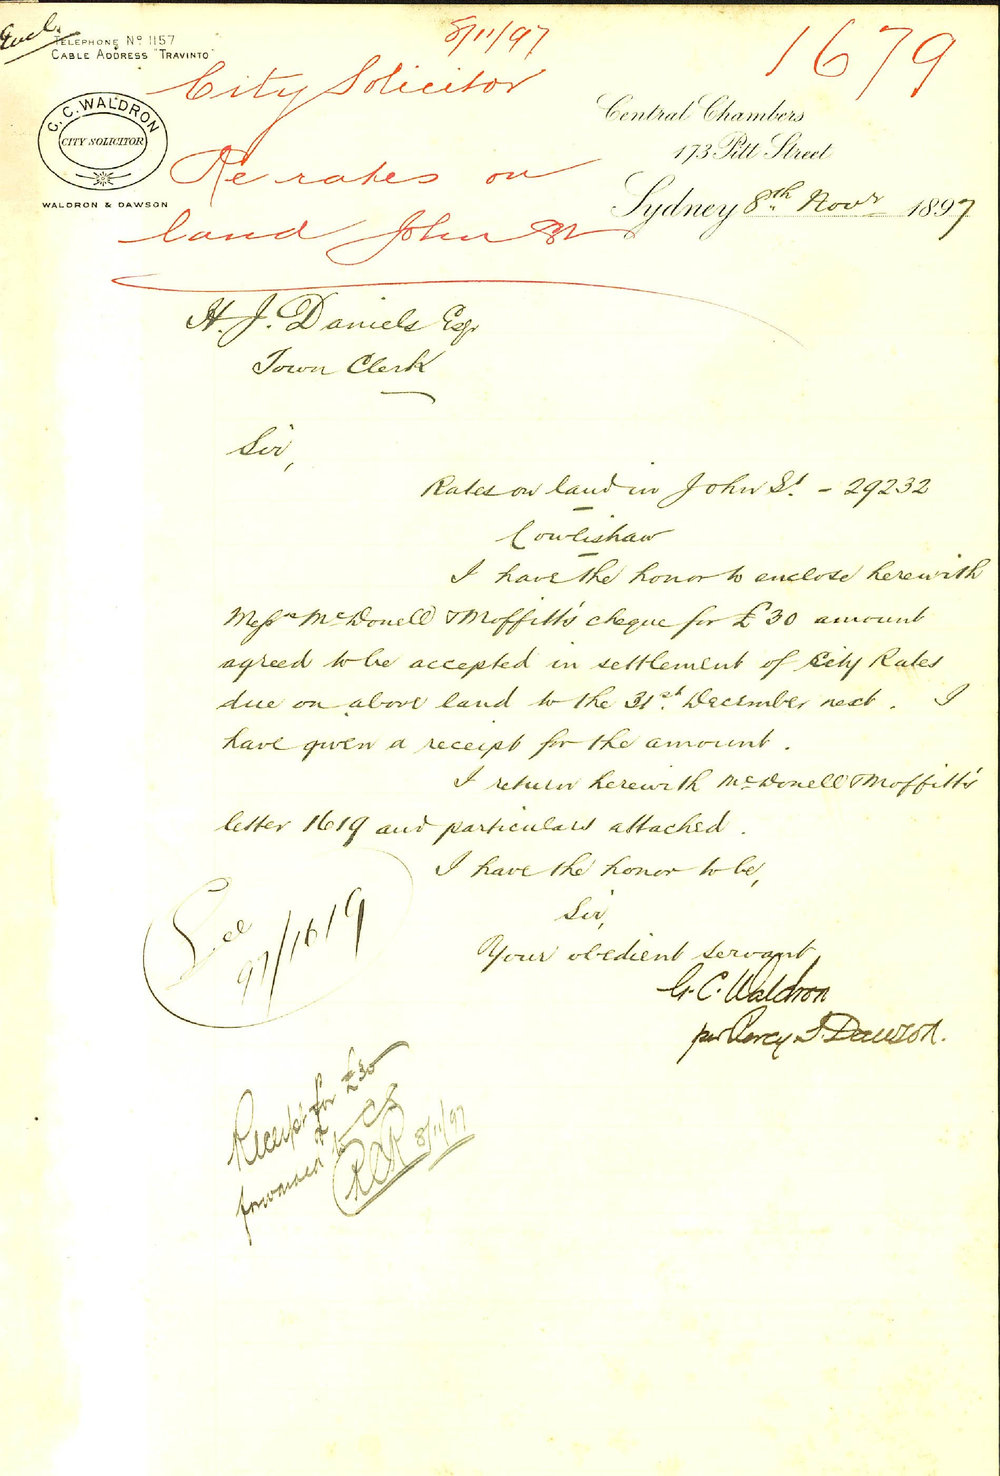 Encl.
Telephone No 1157
Cable Address "Travinto"
8/11/97
1679
City Solicitor
Re rates on
land John St
G. C. WALDRON
CITY SOLICITOR
WALDRON & DAWSON
Central Chambers
173 Pitt Street
Sydney 8th Novr 1897
H. J. Daniels Esqr
Town Clerk
Sir,
Rates on land in John St. - 29232
Cowlishaw
I have the honor to enclose herewith
Messrs McDonell & Moffitt's cheque for £30 amount
agreed to be accepted in settlement of City Rates
due on above land to the 31st December next. I
have given a receipt for the amount.
I return herewith McDonell & Moffitt's
letter 1619 and particulars attached.
I have the honor to be,
Sir,
Your obedient servant
G. C. Waldron
per Percy S. Dawson.
See
97/1619
Receipt for £30
forwarded to CS
8/11/97